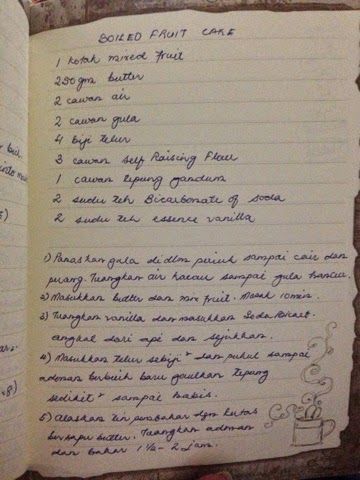 BOILED FRUIT CAKE
1 kotak mixed fruit
250gm butter
2 cawan air
2 cawan gula
4 biji telur
3 cawan Self Raising Flour
1 cawan tepung gandum
2 sudu teh Bicarbonate of soda
2 sudu teh essence vanilla
1) Panaskan gula didlm periuk sampai cair dan
perang. Tuangkan air kacau sampai gula hancur.
2) Masukkan butter dan mix fruit. Masak 10min.
3) Tuangkan vanilla dan masukkan Soda Bicarb.
angkat dari api dan sejukkan.
4) Masukkan telur sebiji² dan pukul sampai
adonan berbuih baru gaulkan tepung
sedikit² sampai habis.
5) Alaskan tin pembakar dgn kertas
bersapu butter. Tuangkan adonan
dan bakar 1½ - 2 jam.